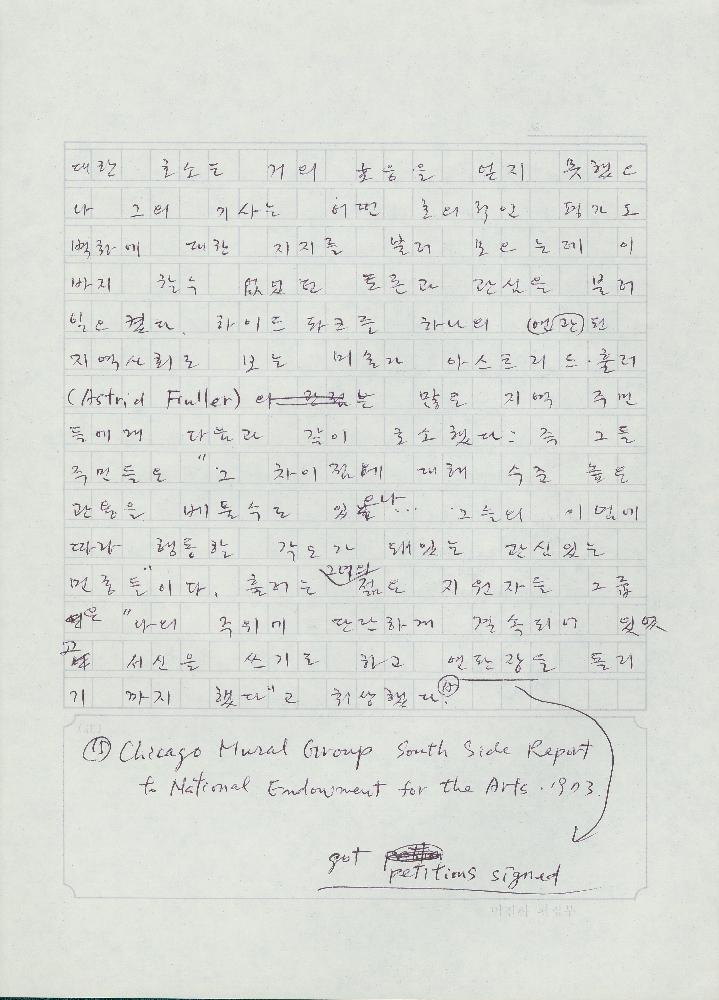 대한 호소도 거의 호응을 얻지 못했으
나 그의 기사는 어떤 호의적인 평가도
벽화에 대한 지지를 불러 모으는데 이
바지 할 수 없었던 토론과 관심을 불러
일으켰다. 하이드 파크를 하나의 연관된
지역사회로 보는 미술가 아스트리드·훌러
(Astrid Fuller) 는 많은 지역 주민
들에게 다음과 같이 호소했다: 즉 그들
주민들은 "그 차이점에 대해 수준 높은
관용을 베풀수도 있으나... 그들의 이념에
따라 행동할 각오가 돼있는 관심있는
민중들"이다. 훌러는 그녀의 젊은 지원자들 그룹
은 "나의 주위에 단단하게 결속되어 있었
고 서신을 쓰기도 하고 연판장을 돌리
기 까지 했다"고 회상했다. ⑮
⑮ Chicago Mural Group South Side Report
to National Endowment for the Arts. 1973.
got
petitions signed